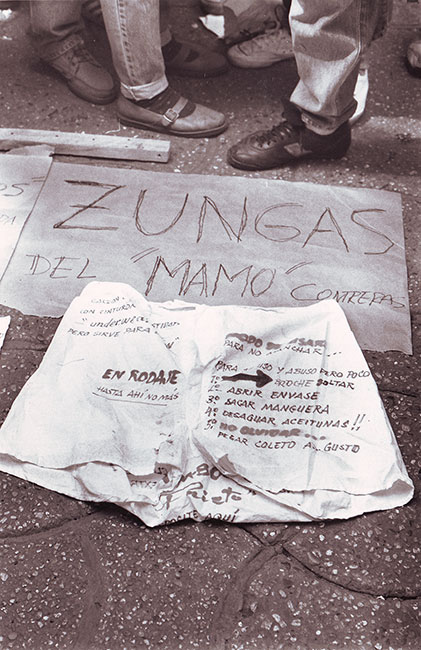 OS"
DA
ZUNGAS
DEL "MAMO" CONTRERAS
CON CINTURA
O underwear
PERO SIRVE PARA
EN RODAJE
HASTA AHÍ NO MÁS
MODO DE USAR
PARA NO MANCHAR...
PARA USO Y ABUSO PERO POCO
BROCHE SOLTAR
2º ABRIR ENVASE
3º SACAR MANGUERA
4º DESAGUAR ACEITUNAS!!
5º NO OLVIDAR...
PEGAR COLETO A... GUSTO
AQUÍ